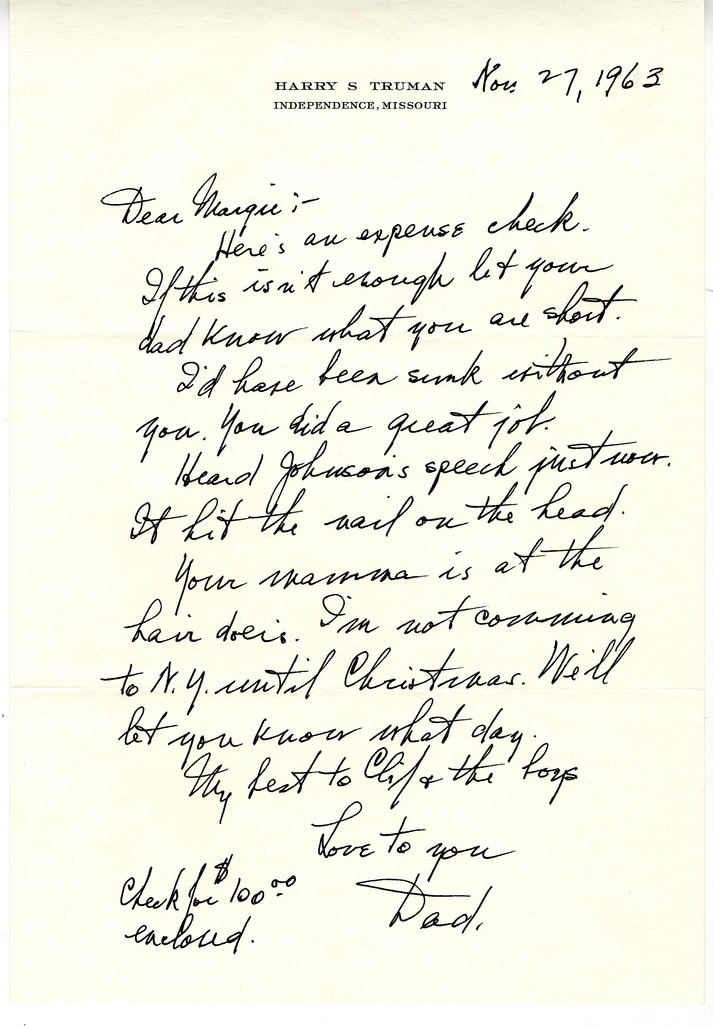 HARRY S TRUMAN
INDEPENDENCE, MISSOURI
Nov. 27, 1963
Dear Margie:-
Here's an expense check.
If this isn't enough let your
dad know what you are short.
I'd have been sunk without
you. You did a great job.
Heard Johnson's speech just now.
It hit the nail on the head.
Your mamma is at the
hair doer's. I'm not comming
to N.Y. until Christmas. We'll
let you know what day.
My best to Clif & the boys
Love to you
Dad.
Check for $100.00
enclosed.